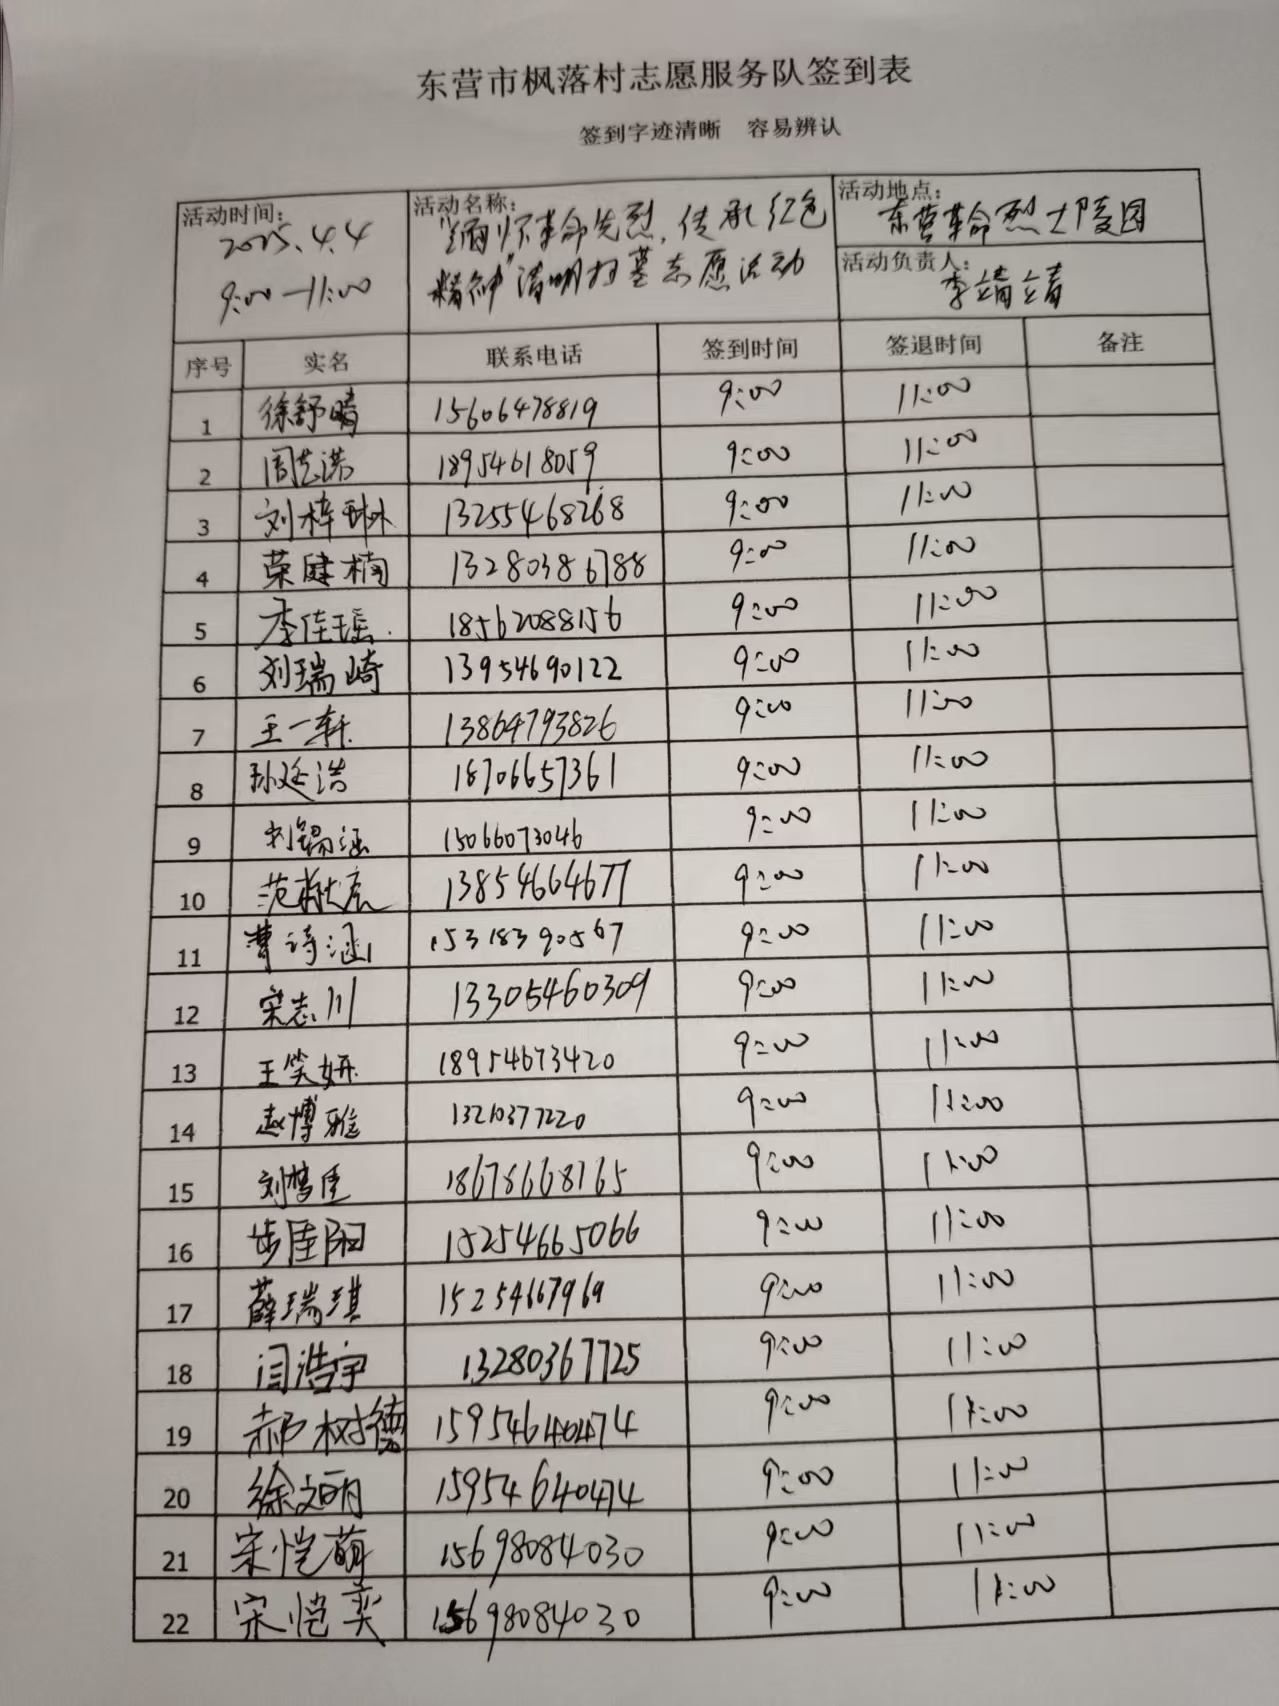 东营市枫落村志愿服务队签到表
签到字迹清晰 容易辨认
活动时间: 2025.4.4
9:00—11:00
活动名称: "缅怀革命先烈,传承红色
精神"清明扫墓志愿活动
活动地点: 东营革命烈士陵园
活动负责人: 李靖靖
序号 实名 联系电话 签到时间 签退时间 备注
1 徐舒晴 15606478819 9:00 11:00
2 周艺诺 18954618059 9:00 11:00
3 刘梓琳 13255468268 9:00 11:00
4 荣健楠 13280386788 9:00 11:00
5 李佳瑶 18562088156 9:00 11:00
6 刘瑞崎 13954690122 9:00 11:00
7 王一轩 13864793826 9:00 11:00
8 孙廷浩 18706657361 9:00 11:00
9 刘锡涵 15066073046 9:00 11:00
10 范 13854664677 9:00 11:00
11 曹诗涵 15318390567 9:00 11:00
12 宋志川 13305460309 9:00 11:00
13 王笑妍 18954673420 9:00 11:00
14 赵博雅 13210377220 9:00 11:00
15 刘梦佳 18678668165 9:00 11:00
16 步佳阳 15254665066 9:00 11:00
17 薛瑞琪 15254667969 9:00 11:00
18 闫浩宇 13280367725 9:00 11:00
19 郝树德 15954640474 9:00 11:00
20 徐文明 15954640474 9:00 11:00
21 宋恺萌 15698084030 9:00 11:00
22 宋恺奕 15698084030 9:00 11:00